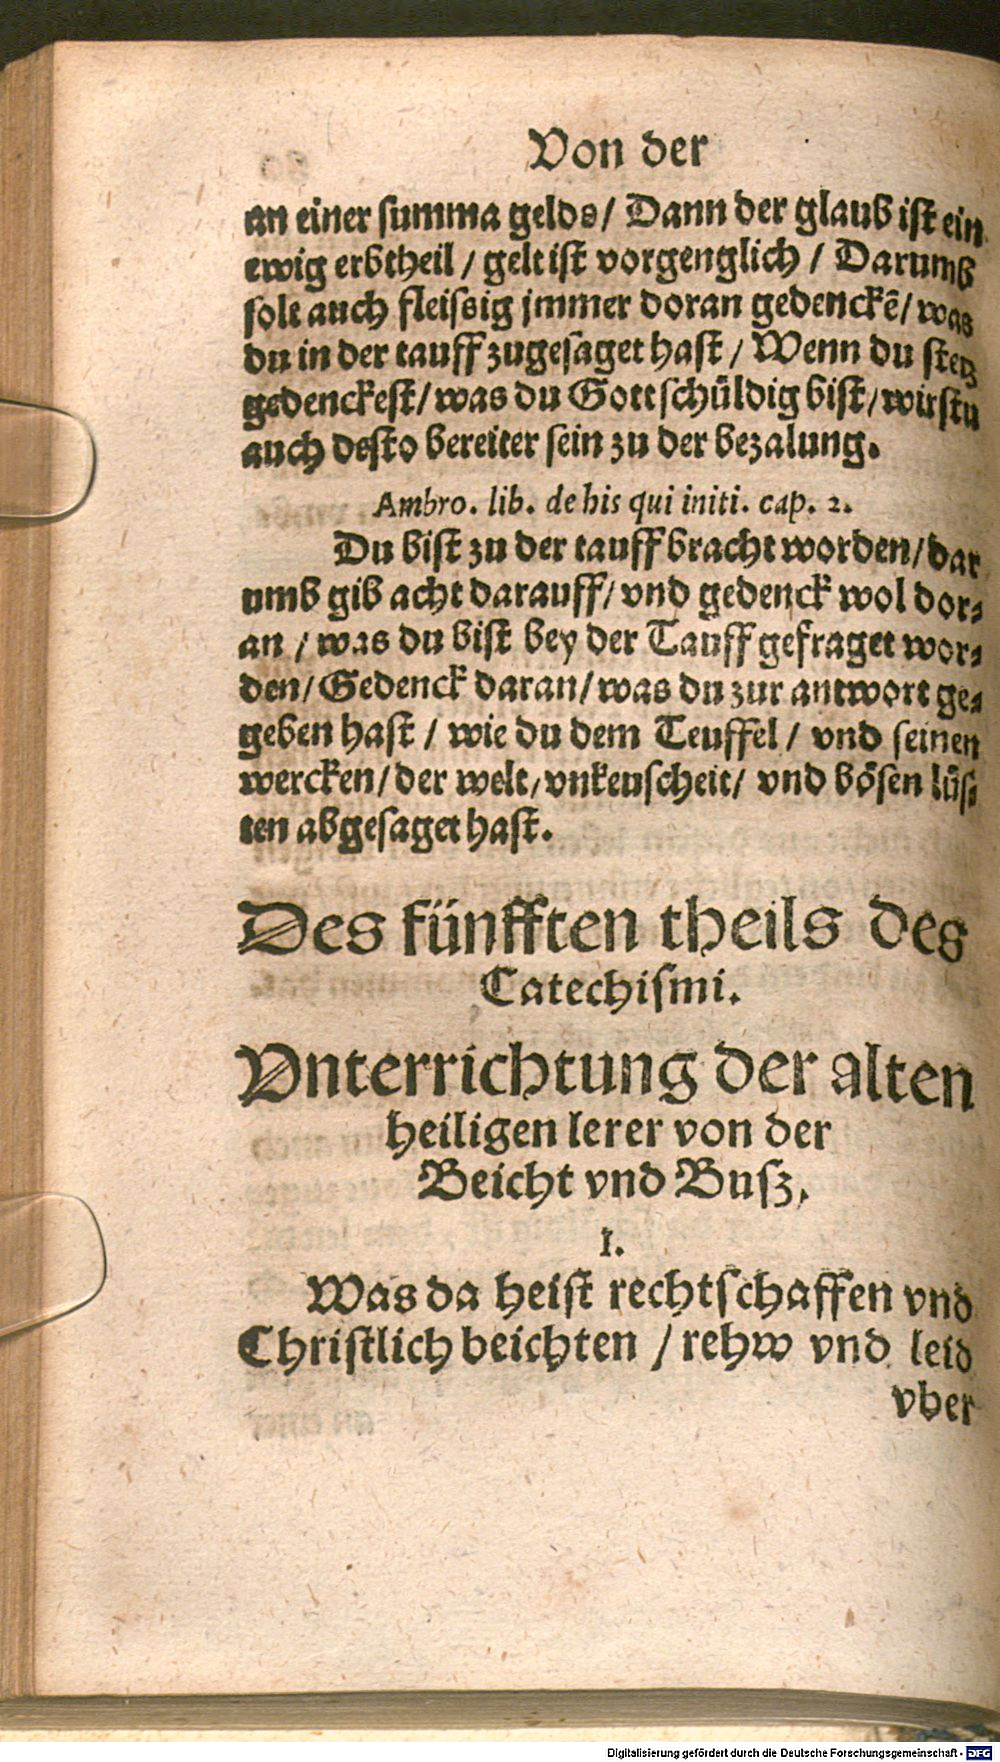 Von der
an einer summa gelds/ Dann der glaub ist ein
ewig erbtheil / gelt ist vorgenglich / Darumb
solt auch fleissig jmmer doran gedenckē/ was
du in der tauff zugesaget hast / Wenn du stetz
gedenckest/ was du Gott schüldig bist/ wirstu
auch desto bereiter sein zu der bezalung.
Ambro. lib. de his qui initi. cap. 2.
Du bist zu der tauff bracht worden/ dar
umb gib acht darauff/ vnd gedenck wol dor⸗
an / was du bist bey der Tauff gefraget wor⸗
den/ Gedenck daran/ was du zur antwort ge⸗
geben hast / wie du dem Teuffel / vnd seinen
wercken/ der welt/ vnkeuscheit/ vnd bösen lüs⸗
ten abgesaget hast.
Des fünfften theils des
Catechismi.
Vnterrichtung der alten
heiligen lerer von der
Beicht vnd Busz.
I.
Was da heist rechtschaffen vnd
Christlich beichten / rehw vnd leid
vber
Digitalisierung gefördert durch die Deutsche Forschungsgemeinschaft - DFG